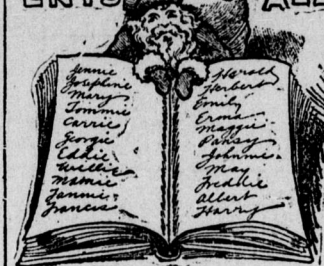 ENTS ALL
Jennie
Josephine
Mary
Tommie
Carrie
Georgie
Eddie
Willie
Mamie
Fannie
Frances
Harold
Herbert
Emily
Erma
Maggie
Pansy
Johnnie
May
Freddie
Albert
Harry